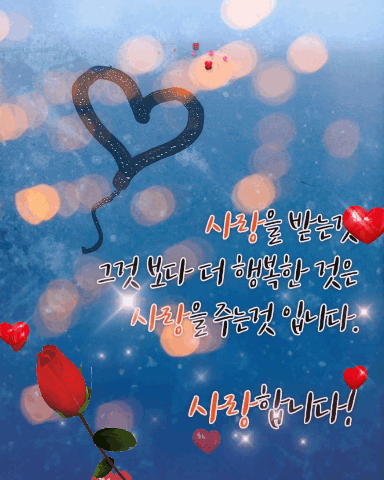 사랑을 받는것
그것 보다 더 행복한 것은
사랑을 주는것 입니다.
사랑합니다!